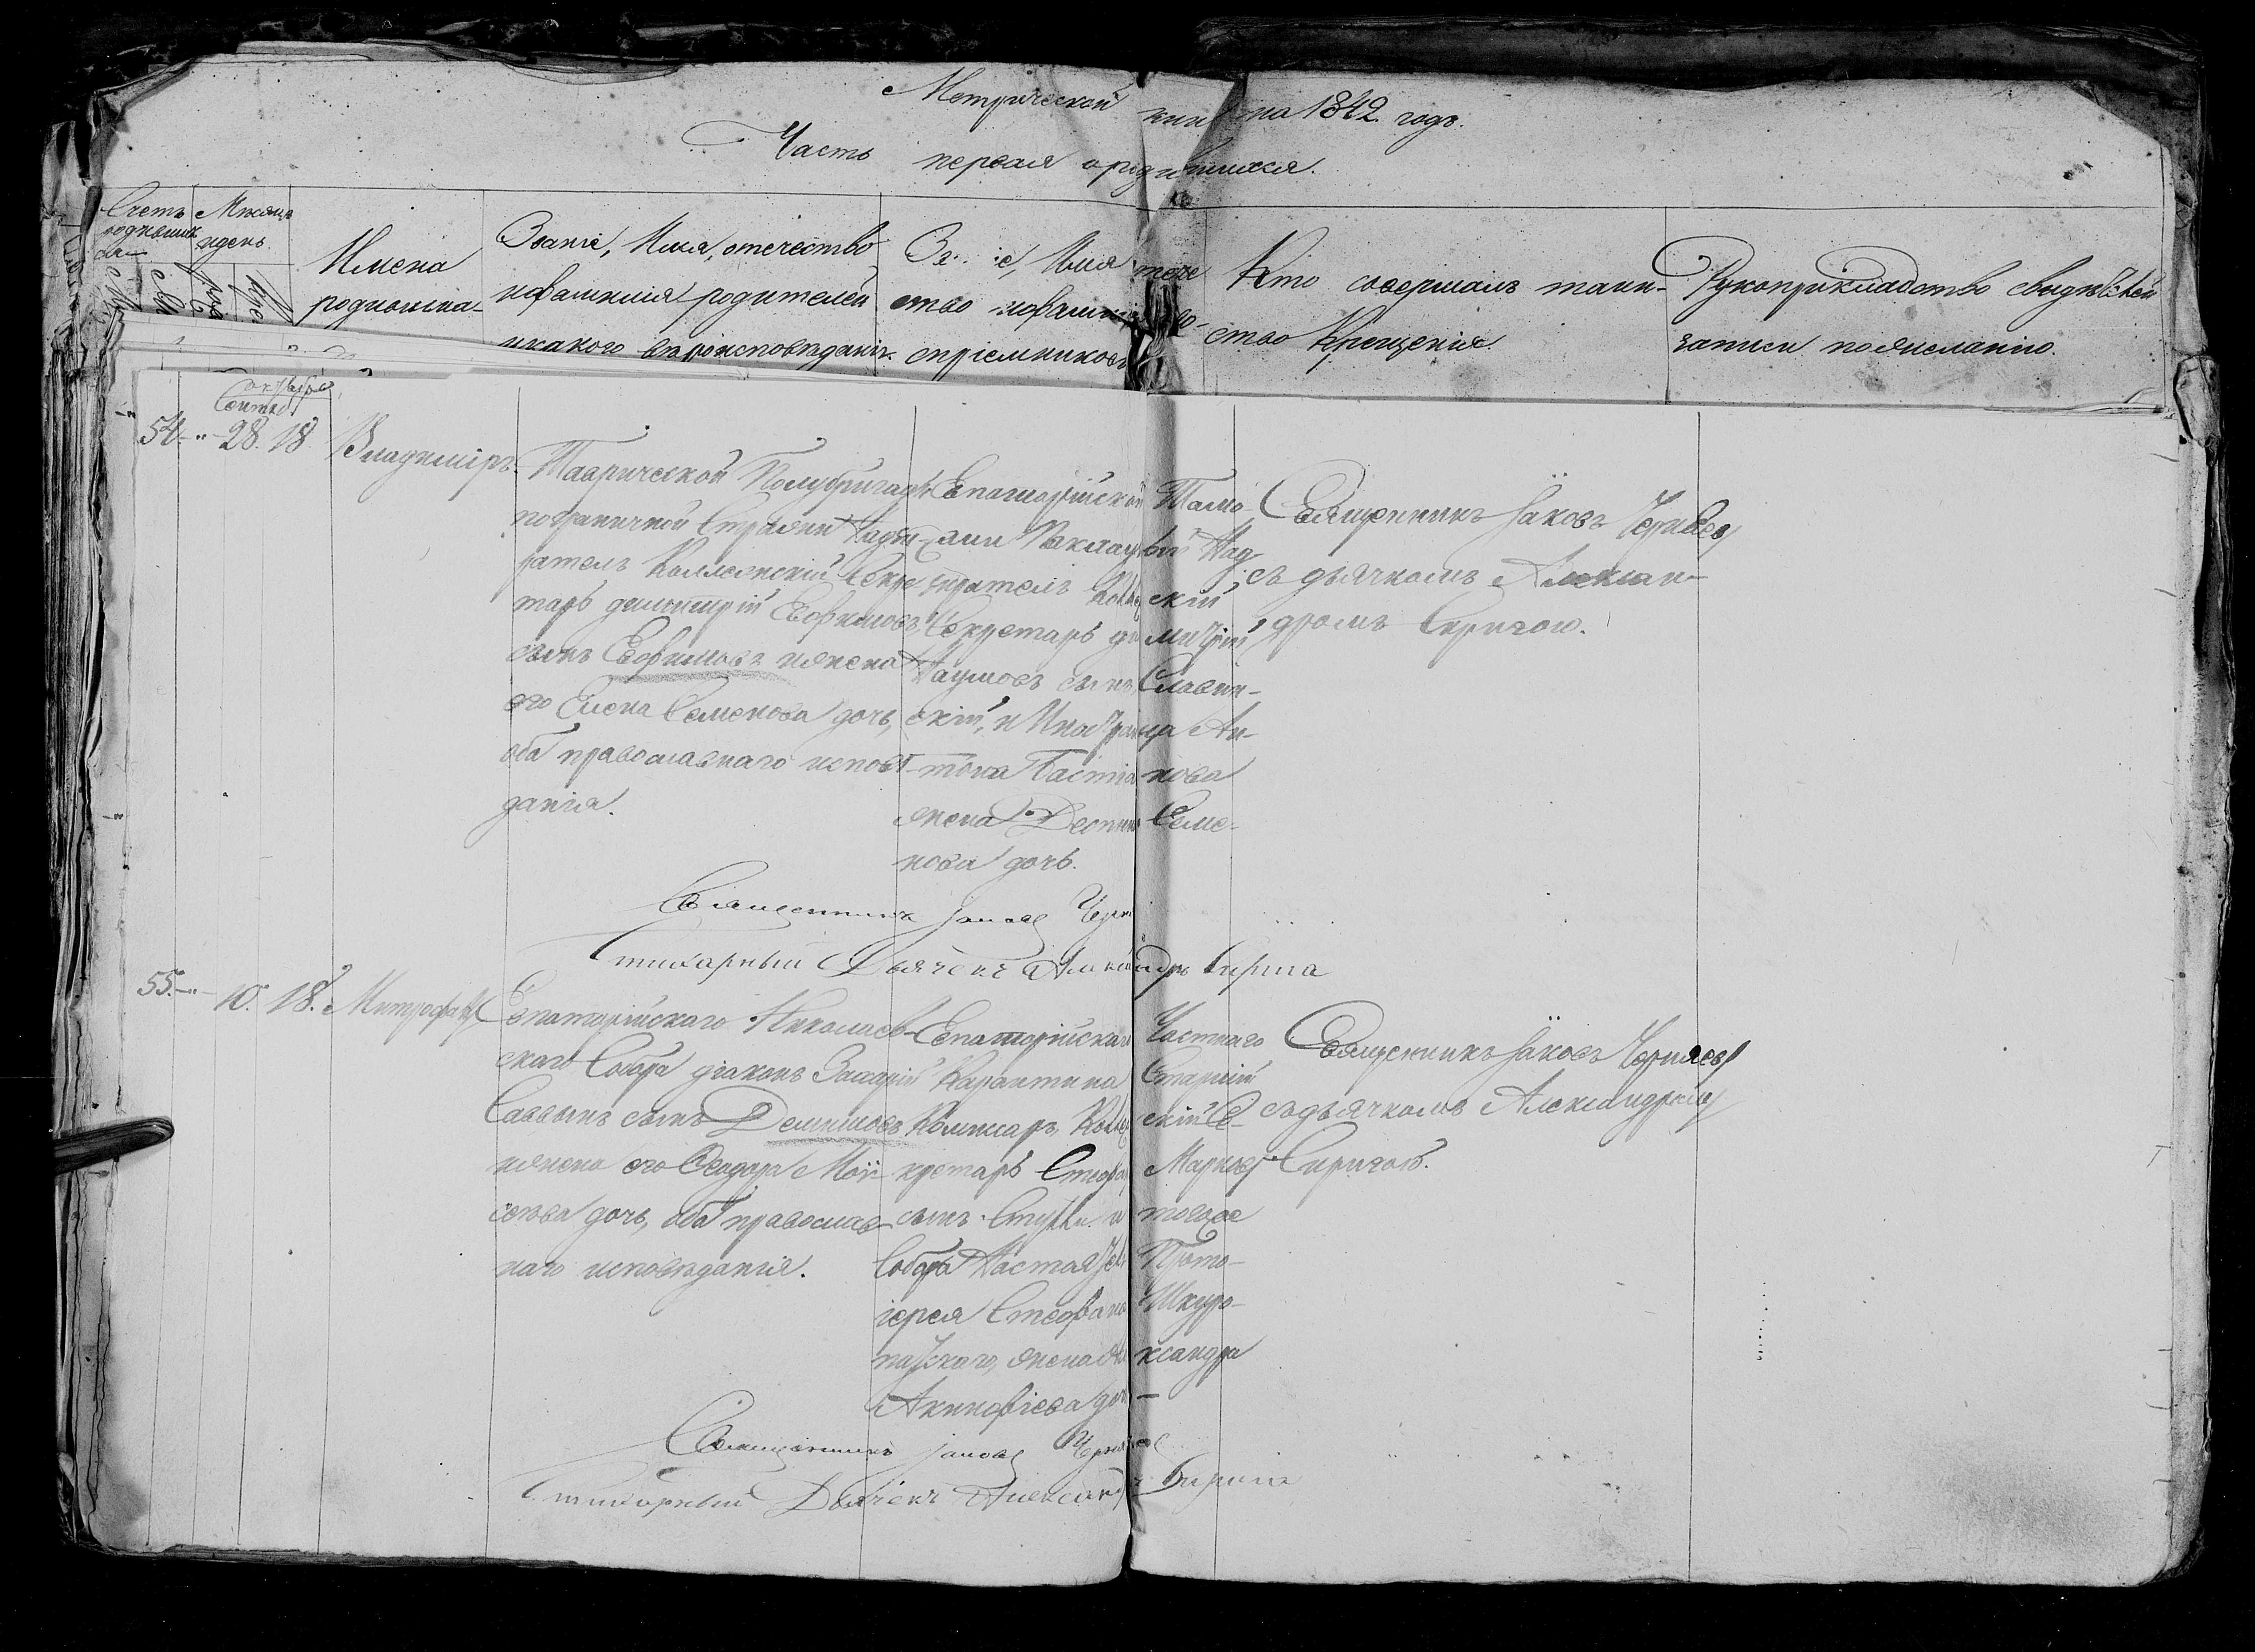 Метрической книги на 1842 годъ.
Часть первая о родившихся.
Счетъ родившихся
Мѣсяцъ и день
Имена родившихся
Званіе, Имя, отечество
и фамилія родителей
и какого вѣроисповѣданія.
Званіе, Имя отече
ство и фамилія во-
спріемниковъ
Кто совершалъ таин-
ство Крещенія.
Рукоприкладство свидѣтелей
записи по желанію.
октября
Сентяб
54. 28. 18. Владиміръ.
Таврической Полубригады
пограничной Стражи Надзи-
ратель Коллежскій Секре
тарь димитрій Евфимовъ
сынъ Евфимовъ и жена
его Елена Семенова дочь,
оба православнаго исповѣ-
данія.
Евпаторійской Тамо-
жни Пакгаузной Над-
зиратель Коллежскій
Секретарь димитрій
Наумовъ сынъ Славин-
скій, и Иностранца Ан-
тона Бастіанова
жена Семе-
нова дочь.
Священникъ Іаковъ Черняевъ
съ дьячкомъ Алексан-
дромъ Сиригою.
Священникъ Іаковъ
Стихарный Дьячекъ Александръ Сирига
55. 10. 18. Митрофанъ
Евпаторійскаго Николаев-
скаго Собора діаконъ Захарій
Саввынъ сынъ Демишовъ
и жена его Ѳеодора Мои-
сеева дочь, оба православ-
наго исповѣданія.
Евпаторійскаго Частнаго
Карантина Старшій
Комисаръ, Коллежскій Се-
кретарь Стефанъ Марковъ
сынъ и тогоже
Собора Настоятеля Прото-
іерея Стефана Шкуро-
патскаго, жена Александра
Акинфіева дочь
Священникъ Іаковъ Черняевъ
съ дьячкомъ Александромъ
Сиригой.
Священникъ Іаковъ Черняевъ
Стихарный Дьячекъ Александръ Сирига